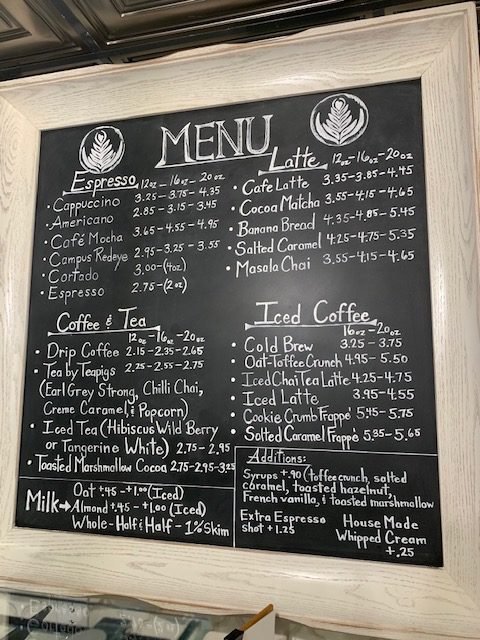 MENU
Espresso 12oz - 16oz - 20oz
• Cappuccino 3.25 - 3.75 - 4.35
• Americano 2.85 - 3.15 - 3.45
• Café Mocha 3.65 - 4.55 - 4.95
• Campus Redeye 2.95 - 3.25 - 3.55
• Cortado 3.00 - (4oz)
• Espresso 2.75 - (2oz)
Latte 12oz - 16oz - 20oz
• Cafe Latte 3.35 - 3.85 - 4.45
• Cocoa Matcha 3.55 - 4.15 - 4.65
• Banana Bread 4.35 - 4.85 - 5.45
• Salted Caramel 4.25 - 4.75 - 5.35
• Masala Chai 3.55 - 4.15 - 4.65
Coffee & Tea
12oz - 16oz - 20oz
• Drip Coffee 2.15 - 2.35 - 2.65
• Tea by Teapigs 2.25 - 2.55 - 2.75
(Earl Grey Strong, Chilli Chai,
Creme Caramel, & Popcorn)
• Iced Tea (Hibiscus Wild Berry
or Tangerine White) 2.75 - 2.95
• Toasted Marshmallow Cocoa 2.75 - 2.95 - 3.25
Iced Coffee
16oz - 20oz
• Cold Brew 3.25 - 3.75
• Oat-Toffee Crunch 4.95 - 5.50
• Iced Chai Tea Latte 4.25 - 4.75
• Iced Latte 3.95 - 4.55
• Cookie Crumb Frappé 5.45 - 5.75
• Salted Caramel Frappé 5.35 - 5.65
Milk → Oat +.45 - +1.00 (Iced)
Almond +.45 - +1.00 (Iced)
Whole - Half & Half - 1% Skim
Additions:
Syrups +.90 (toffee crunch, salted
caramel, toasted hazelnut,
French vanilla, & toasted marshmallow
Extra Espresso
shot +1.25
House Made
Whipped Cream
+.25